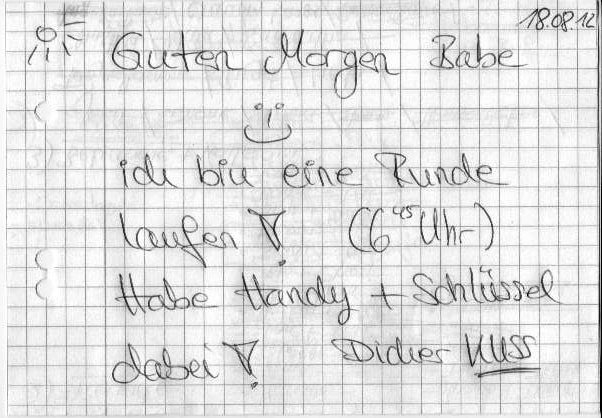 18.08.12
Guten Morgen Babe
ich bin eine Runde
laufen! (6 45 Uhr)
Habe Handy + Schlüssel
dabei! Dicker KUSS